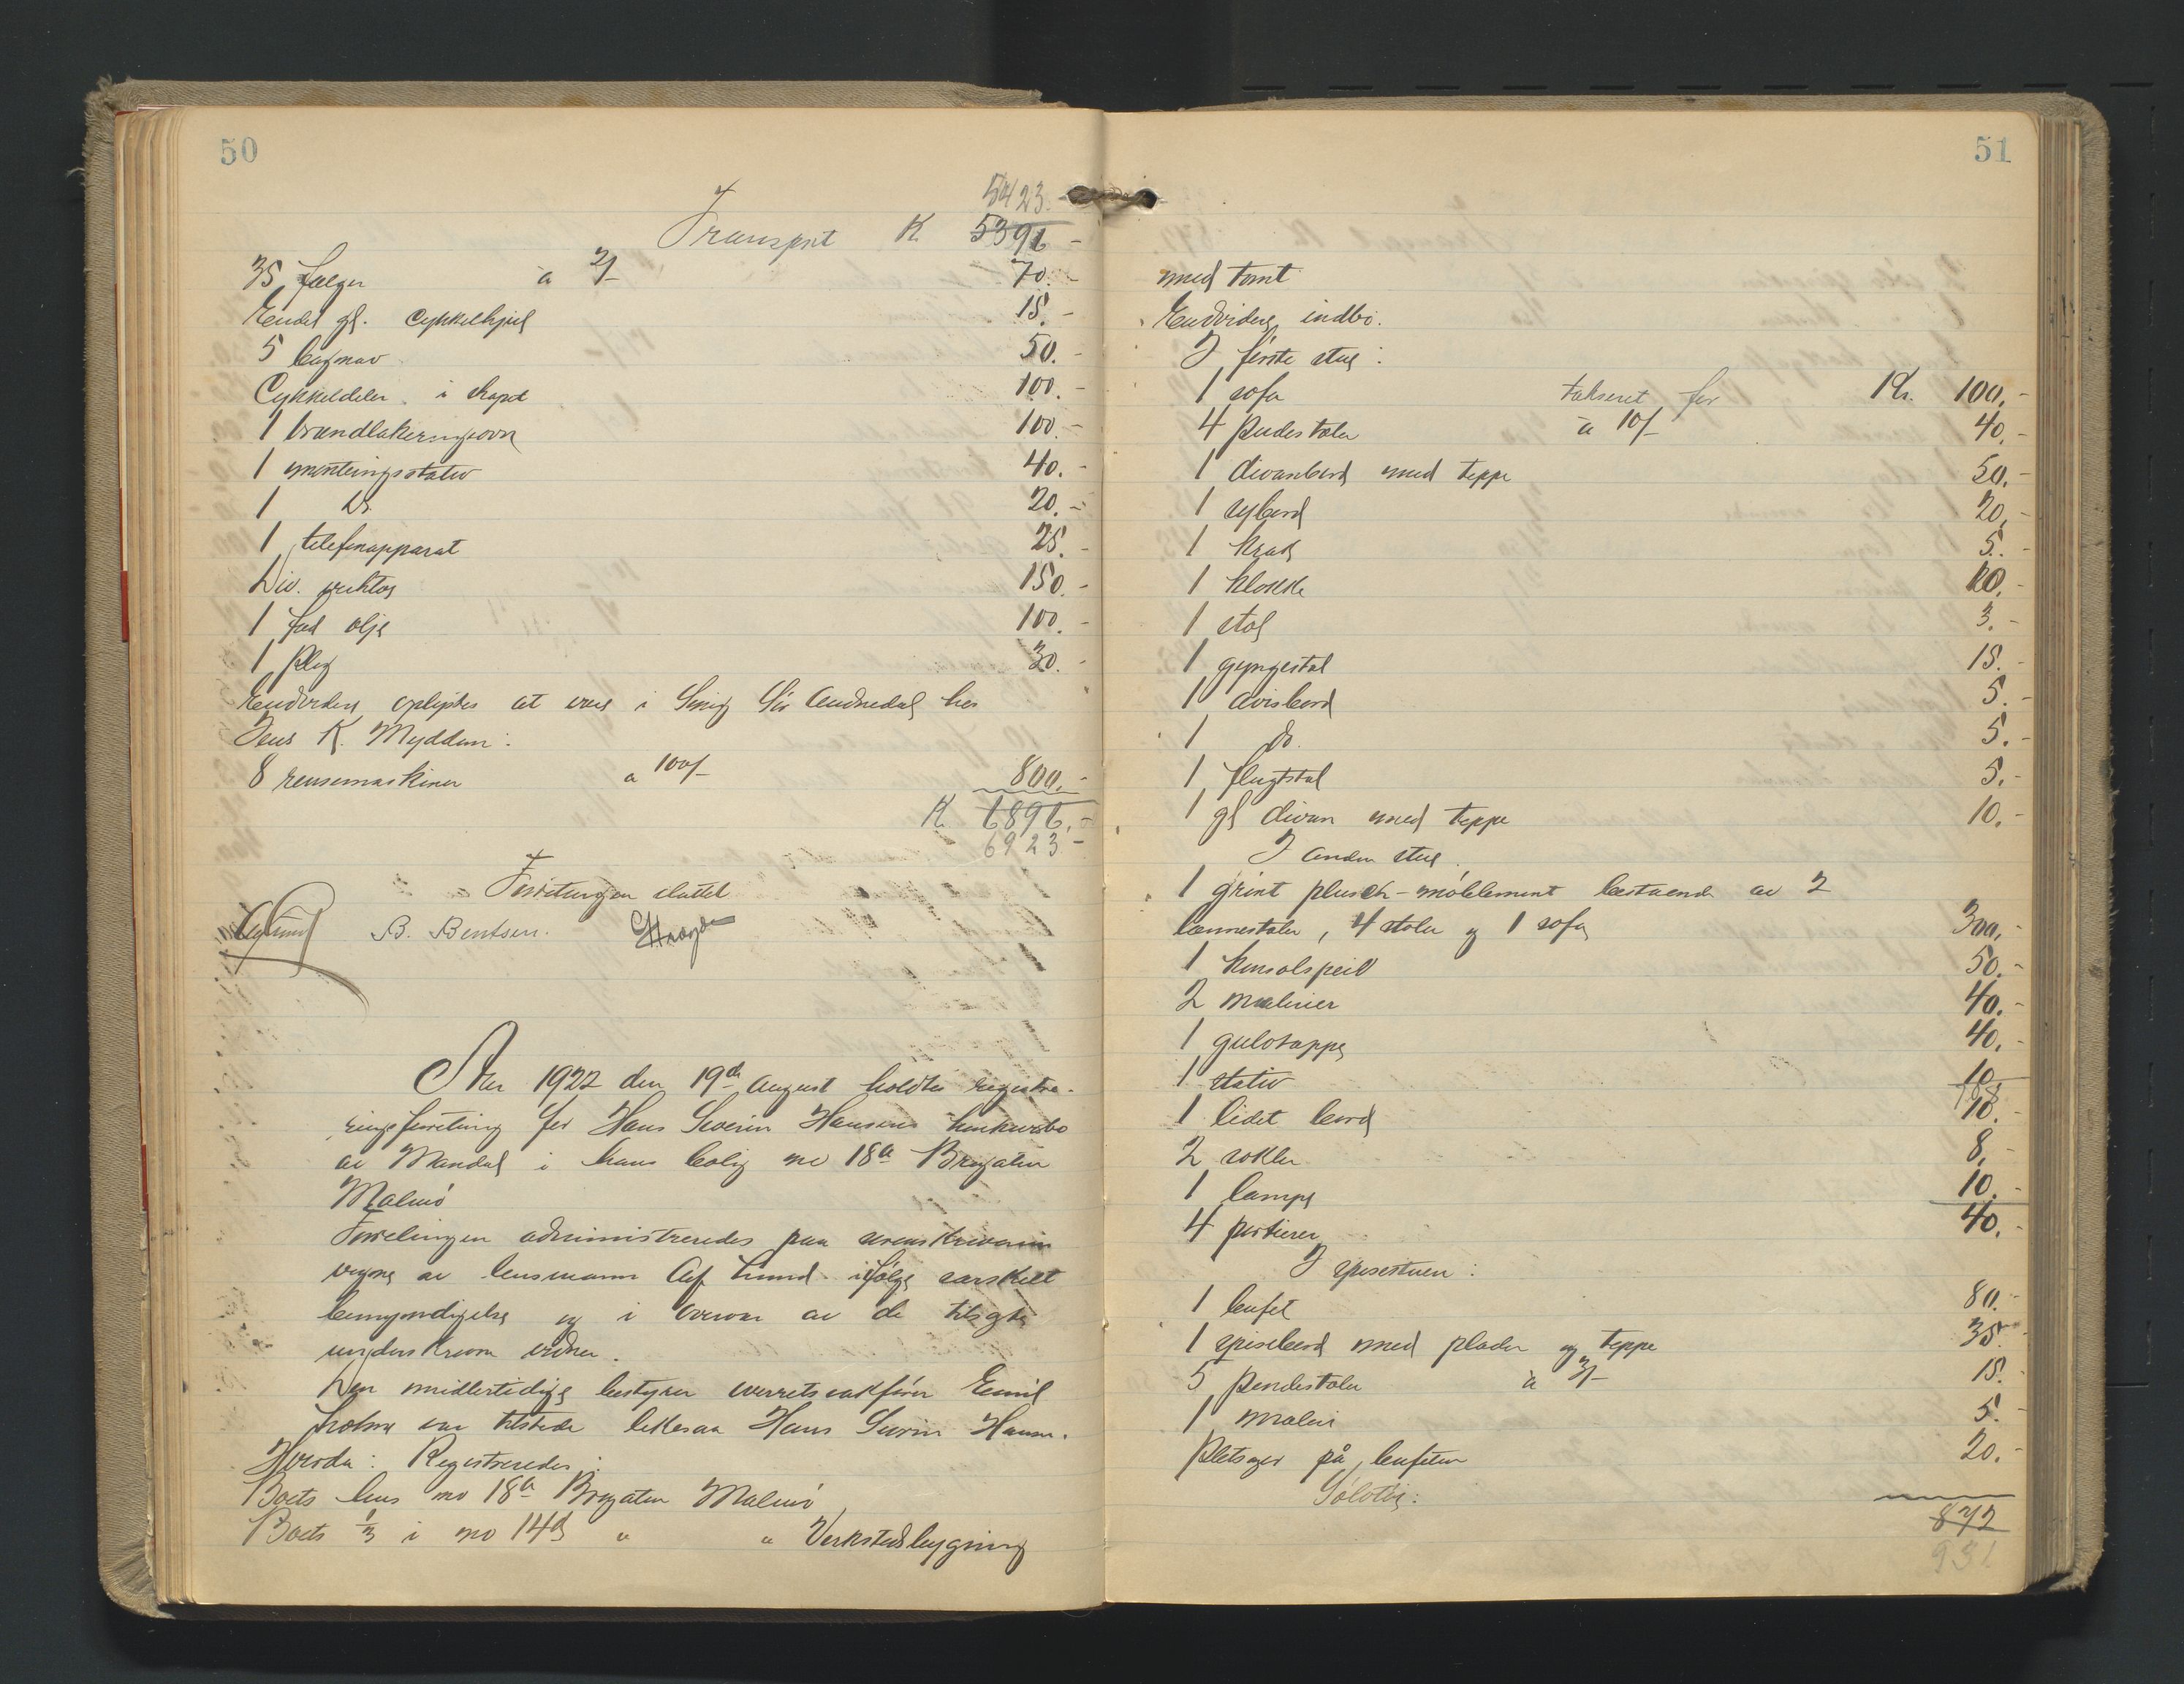 50
5423.-
Transport K 5396 -
35 fælger a 2/- 70.-
Endel gl. cykkelhjul 15.-
5 bagnav 50.-
Cykkeldeler i skapet 100.-
1 brændlakeringsovn 100.-
1 monteringsstativ 40.-
1 do 20.-
1 telefonapparat 25.-
Div. verktøi 150.-
1 fad olje 100.-
1 plog 30.-
Endvidere oplystes at være i Sør Audnedal hos
Jens K. Myddun:
8 rensemaskiner a 100/- 800.-
K 6896.-
6923 -
Forretningen sluttet
B. Bentsen.
Aar 1922 den 19de august holdtes registre-
ringsforretning for Hans Severin Hansens konkursbo
av Mandal i hans bolig no 18a Bryggaten
Malmø
Forretningen administreredes paa sorenskriverens
vegne av lensmann Alf Lund ifølge særskilt
bemyndigelse og i overvær av de tilsagte
underskrevne vidner.
Den midlertidige bestyrer overretssakfører Emil
var tilstede likesaa Hans Severin Hansen.
Hvorda: Registreredes:
Boets hus no 18a Bryggaten Malmø
Boets 1/3 i no 14d " " Verkstedsbygning
51
med tomt
Endvidere indbo.
I første stue:
1 sofa takseret for Kr. 100,-
4 pudestoler a 10/- 40,-
1 divanbord med teppe 50,-
1 sybord 20,-
1 krak 5.-
1 klokke 10.-
1 stol 3.-
1 gyngestol 15.-
1 avisbord 5.-
1 do 5.-
1 flugtstol 5.-
1 gl divan med teppe 10.-
I anden stue.
1 grønt plusch-møblement bestaaende av 2
lænnestoler, 4 stoler og 1 sofa 300,-
1 konsolspeil 50.-
2 malerier 40.-
1 gulvtæppe 40.-
1 stativ 10
1 lidet bord 10.-
2 sokler 8,-
1 lampe 10.-
4 portierer 40.-
I spisestuen:
1 bufet 80.-
1 spisebord med plader og teppe 35.-
5 pindestoler a 3/- 15.-
1 maleri 5.-
Pletsager på bufeten 20.-
Sølvtøi:
872
931